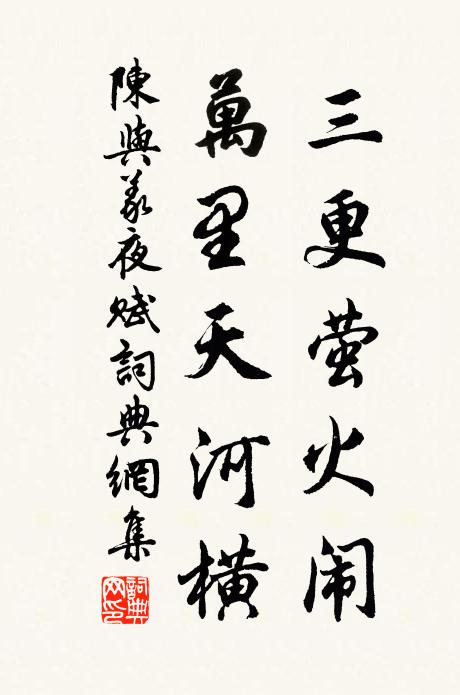 三更萤火闹
萬里天河橫
陳與義夜賦詞典網集
詞典网印